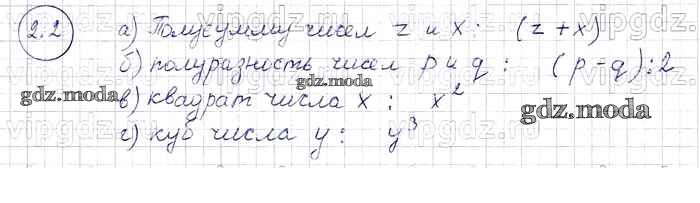 2.2 а) Полусумму чисел z и x: (z+x)
б) полуразность чисел p и q: (p-q):2
в) квадрат числа x: x²
г) куб числа y: y³
gdz.moda
gdz.moda
gdz.moda